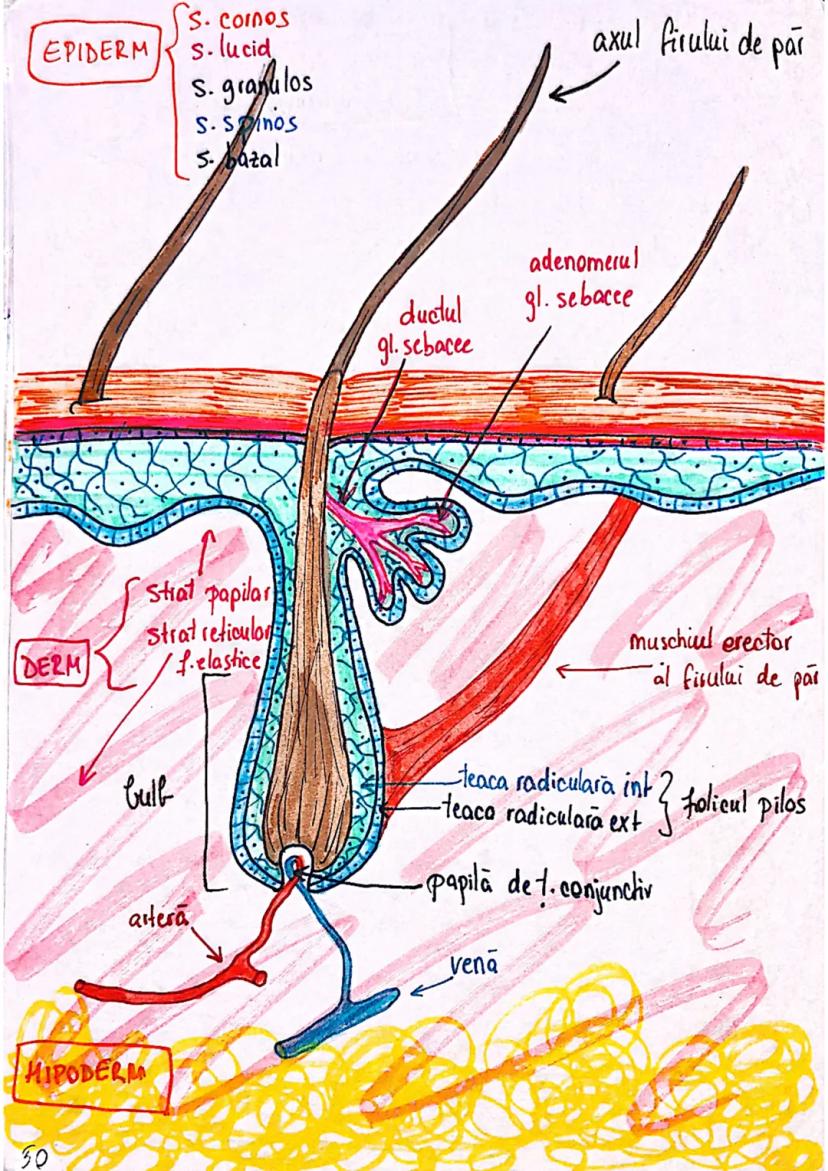 EPIDERM
s. cornos
s. lucid
s. granulos
s. spinos
s. bazal
axul firului de păr
adenomerul
gl. sebacee
ductul
gl. sebacee
DERM
strat papilar
strat reticular
f. elastice
muschiul erector
al firului de păr
bulb
teaca radiculară int
teaca radiculară ext
folicul pilos
papilă de ț. conjunctiv
arteră
venă
HIPODERM
50